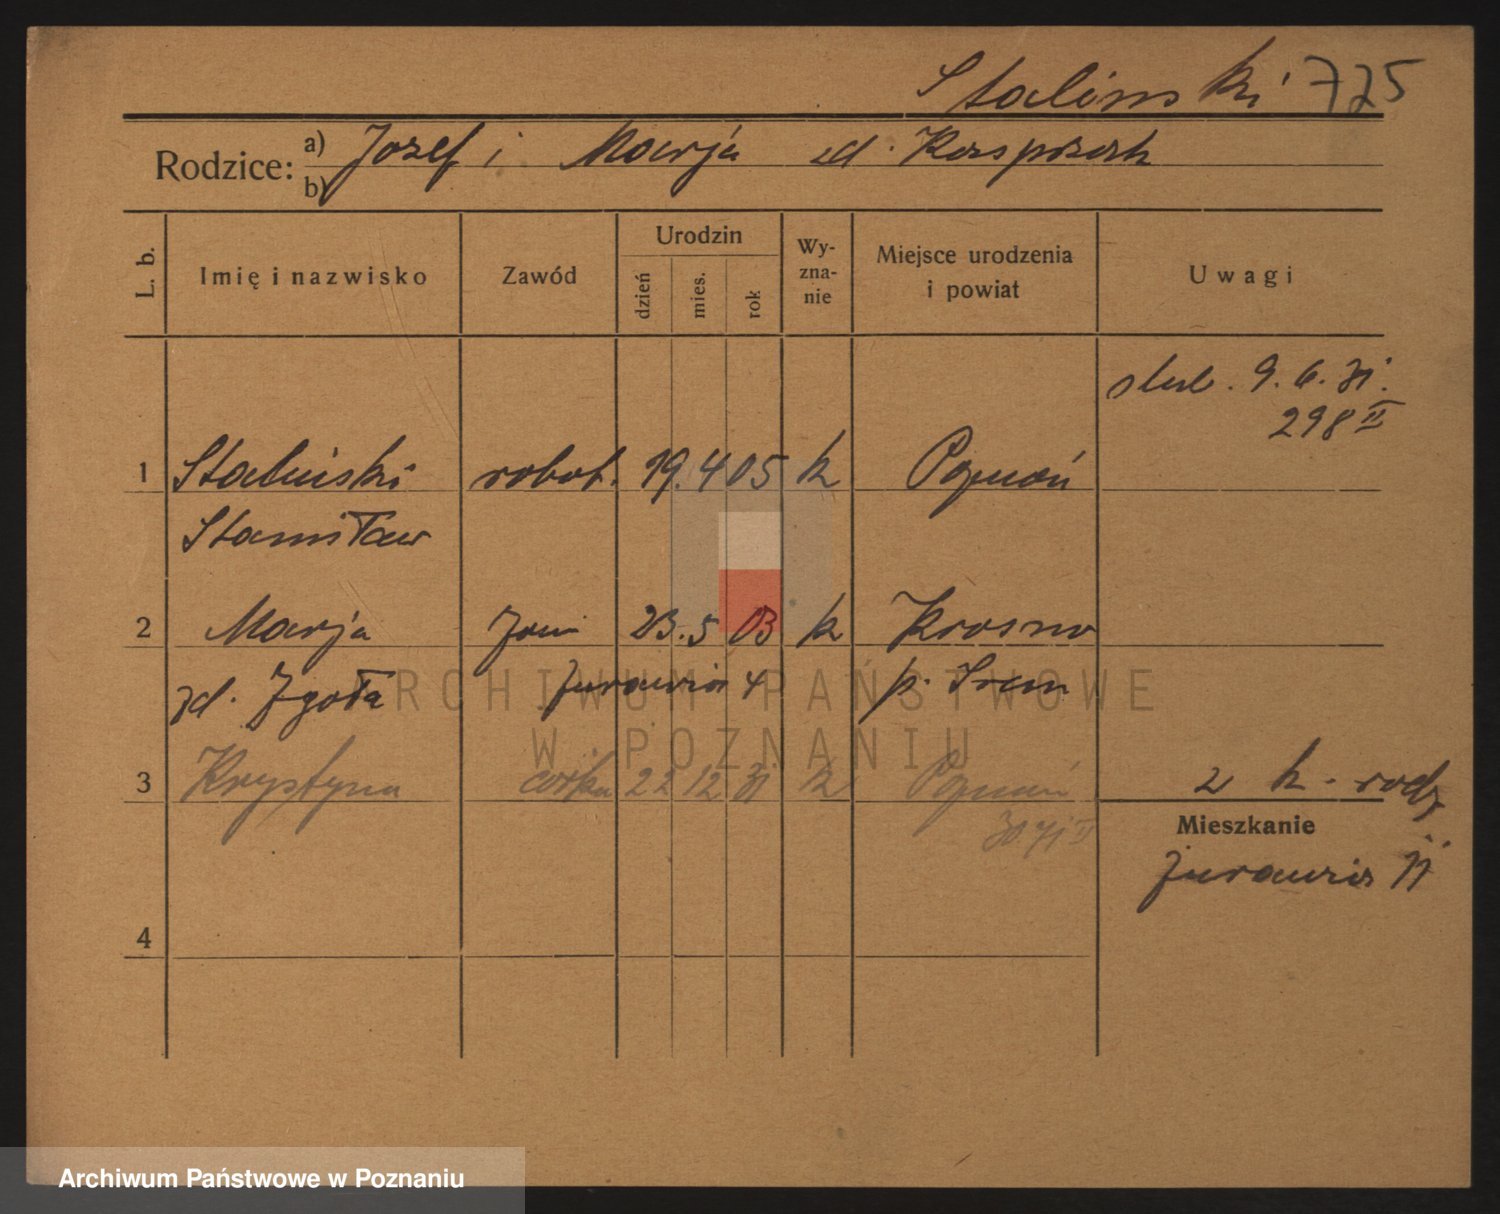 Staliński 725
Rodzice: a) Józef i Marja zd. Kasprzak
b)
L. b. Imię i nazwisko Zawód Urodzin Wyznanie Miejsce urodzenia i powiat Uwagi
dzień mies. rok
ślub. 9.6.31.
298 II
1 Staliński robot. 19. 4 05 k Poznań
Stanisław
2 Marja żona 23. 5 03 k Krosno
zd. Zgoła Żurawia 4 p. Śrem
3 Krystyna córka 22 12 31 k Poznań z k. rodz
3071 II
Mieszkanie
Żurawia 11
4
ARCHIWUM PAŃSTWOWE
W POZNANIU
Archiwum Państwowe w Poznaniu